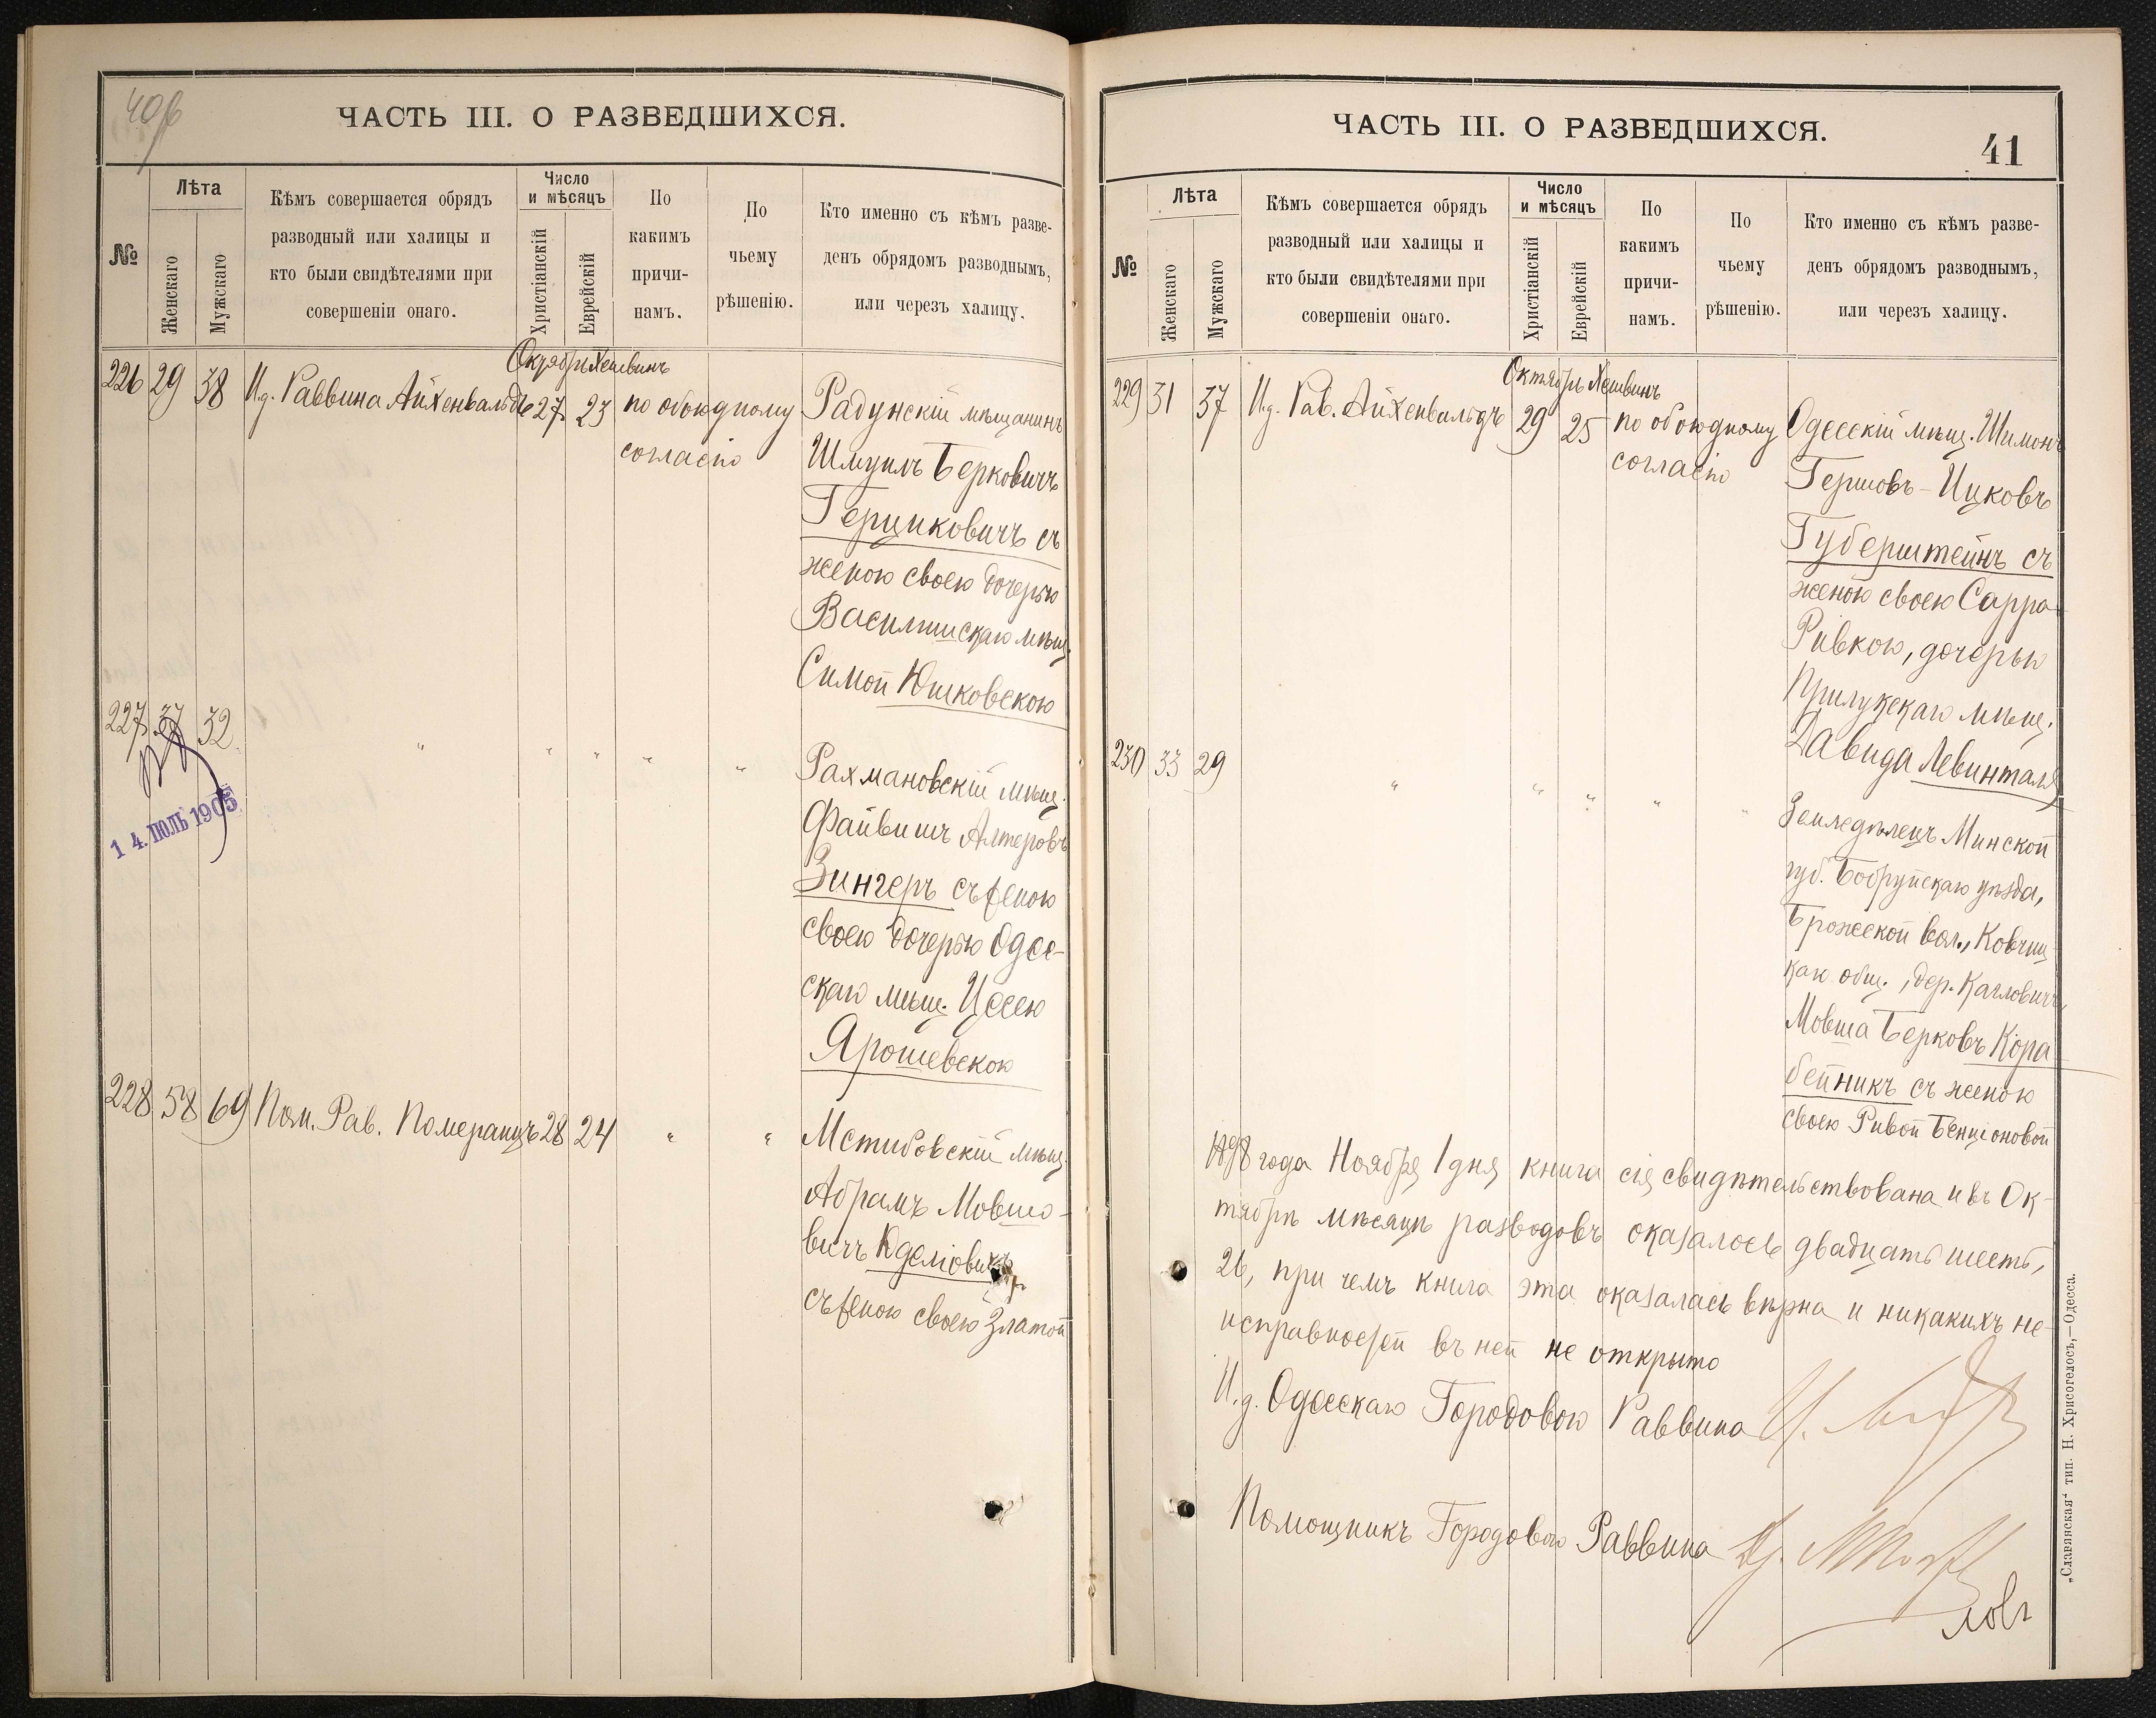 40об
ЧАСТЬ III. О РАЗВЕДШИХСЯ.
№
Лѣта
Женскаго
Мужскаго
Кѣмъ совершается обрядъ
разводный или халицы и
кто были свидѣтелями при
совершеніи онаго.
Число
и мѣсяцъ
Христіанскій
Еврейскій
По
какимъ
причи-
намъ.
По
чьему
рѣшенію.
Кто именно съ кѣмъ разве-
денъ обрядомъ разводнымъ,
или черезъ халицу.
Октябрь Хешвинъ
226 29 38 И.д. Раввина Айхенвальдъ 27 23 по обоюдному
согласію
Радунскій мѣщанинъ
Шмуилъ Берковичъ
Герциковичъ съ
женою своею дочерью
Василишскаго мѣщ.
Симой Юшковскою
227 37 32 " " " " "
14 ІЮЛЬ 1905
Рахмановскій мѣщ.
Файвишъ Алтеровъ
Зингеръ съ женою
своею дочерью Одес-
скаго мѣщ. Цссею
Ярошевскою
228 58 69 Пом. Рав. Померанцъ 28 24 " "
Мстибовскій мѣщ.
Абрамъ Мовшо-
вичъ
съ женою своею Златой
ЧАСТЬ III. О РАЗВЕДШИХСЯ.
41
№
Лѣта
Женскаго
Мужскаго
Кѣмъ совершается обрядъ
разводный или халицы и
кто были свидѣтелями при
совершеніи онаго.
Число
и мѣсяцъ
Христіанскій
Еврейскій
По
какимъ
причи-
намъ.
По
чьему
рѣшенію.
Кто именно съ кѣмъ разве-
денъ обрядомъ разводнымъ,
или черезъ халицу.
Октябрь Хешвинъ
229 31 37 И.д. Рав. Айхенвальдъ 29 25 по обоюдному
согласію
Одесскій мѣщ. Шимонъ
Гершовъ-Ицковъ
Губерштейнъ съ
женою своею Сарра
Ривкою, дочерью
Прилукскаго мѣщ.
Давида Левинталя
230 33 29 " " " " "
Земледѣлецъ Минской
губ. Бобруйскаго уѣзда,
Брожской вол., Ковчиц
каго общ., дер.
Мовша Берковъ Кора
бейникъ съ женою
своею Ривой Бенціоновой
1898 года Ноября 1 дня книга сія свидѣтельствована и въ Ок-
тябрѣ мѣсяцѣ разводовъ оказалось двадцать шесть,
26, при чемъ книга эта оказалась вѣрна и никакихъ не-
исправностей въ ней не открыто
И.д. Одесскаго Городоваго Раввина
Помощникъ Городоваго Раввина
„Славянская“ тип. Н. Хрисогелосъ,—Одесса.